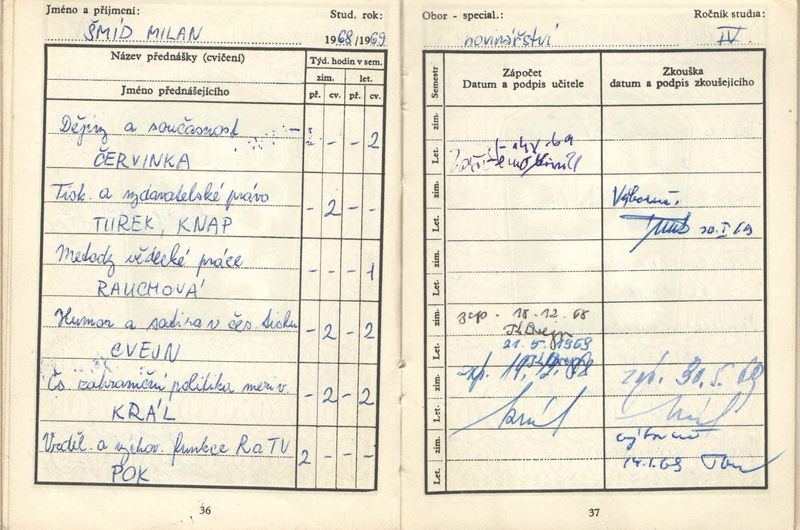 Jméno a příjmení:
ŠMÍD MILAN
Stud. rok:
1968/1969
Název přednášky (cvičení)
Jméno přednášejícího
Týd. hodin v sem.
zim. let.
př. cv. př. cv.
Dějiny a současnost – – 2
ČERVINKA
Tisk. a vydavatelské právo - 2 - -
TUREK, KNAP
Metody vědecké práce - - - 1
RAUCHOVÁ
Humor a satira v čes. tisku - 2 - 2
CVEJN
Čs. zahraniční politika meziv. - 2 - 2
KRÁL
Vzděl. a výchov. funkce R a TV 2 - - -
POK
36
Obor - special.:
novinářství
Ročník studia:
IV.
Semestr
Zápočet
Datum a podpis učitele
Zkouška
datum a podpis zkoušejícího
zim.
Let.
zim.
Výborně.
Let.
30.I 69
zim.
Let.
zim.
zap - 18.12.68
Let.
21.5.1969
zim.
zp. 19.12.68
výb. 30.5.69
Let.
Král
Král
zim.
výborně
Let.
14.1.69
37